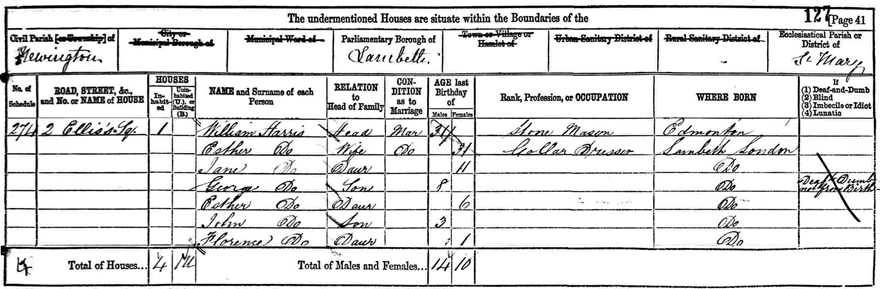 The undermentioned Houses are situate within the Boundaries of the 127 [Page 41
Civil Parish [or Township] of City or Municipal Borough of Municipal Ward of Parliamentary Borough of Town or Village or Hamlet of Urban Sanitary District of Rural Sanitary District of Ecclesiastical Parish or District of
Newington Lambeth St Mary
No. of Schedule ROAD, STREET, &c., and No. or NAME of HOUSE HOUSES In-habit-ed Unin-habited (U.), or Building (B.) NAME and Surname of each Person RELATION to Head of Family CON-DITION as to Marriage AGE last Birthday of Males Females Rank, Profession, or OCCUPATION WHERE BORN If (1) Deaf-and-Dumb (2) Blind (3) Imbecile or Idiot (4) Lunatic
274 2 Ellis's Sq. 1 William Harris Head Mar 34 Stone Mason Edmonton
Esther Do Wife Do 31 Collar Dresser Lambeth London
Jane Do Daur 11 Do
George Do Son 8 Do Deaf & Dumb not from Birth
Esther Do Daur 6 Do
John Do Son 3 Do
Florence Do Daur 1 Do
4 Total of Houses... 4 Total of Males and Females... 14 10